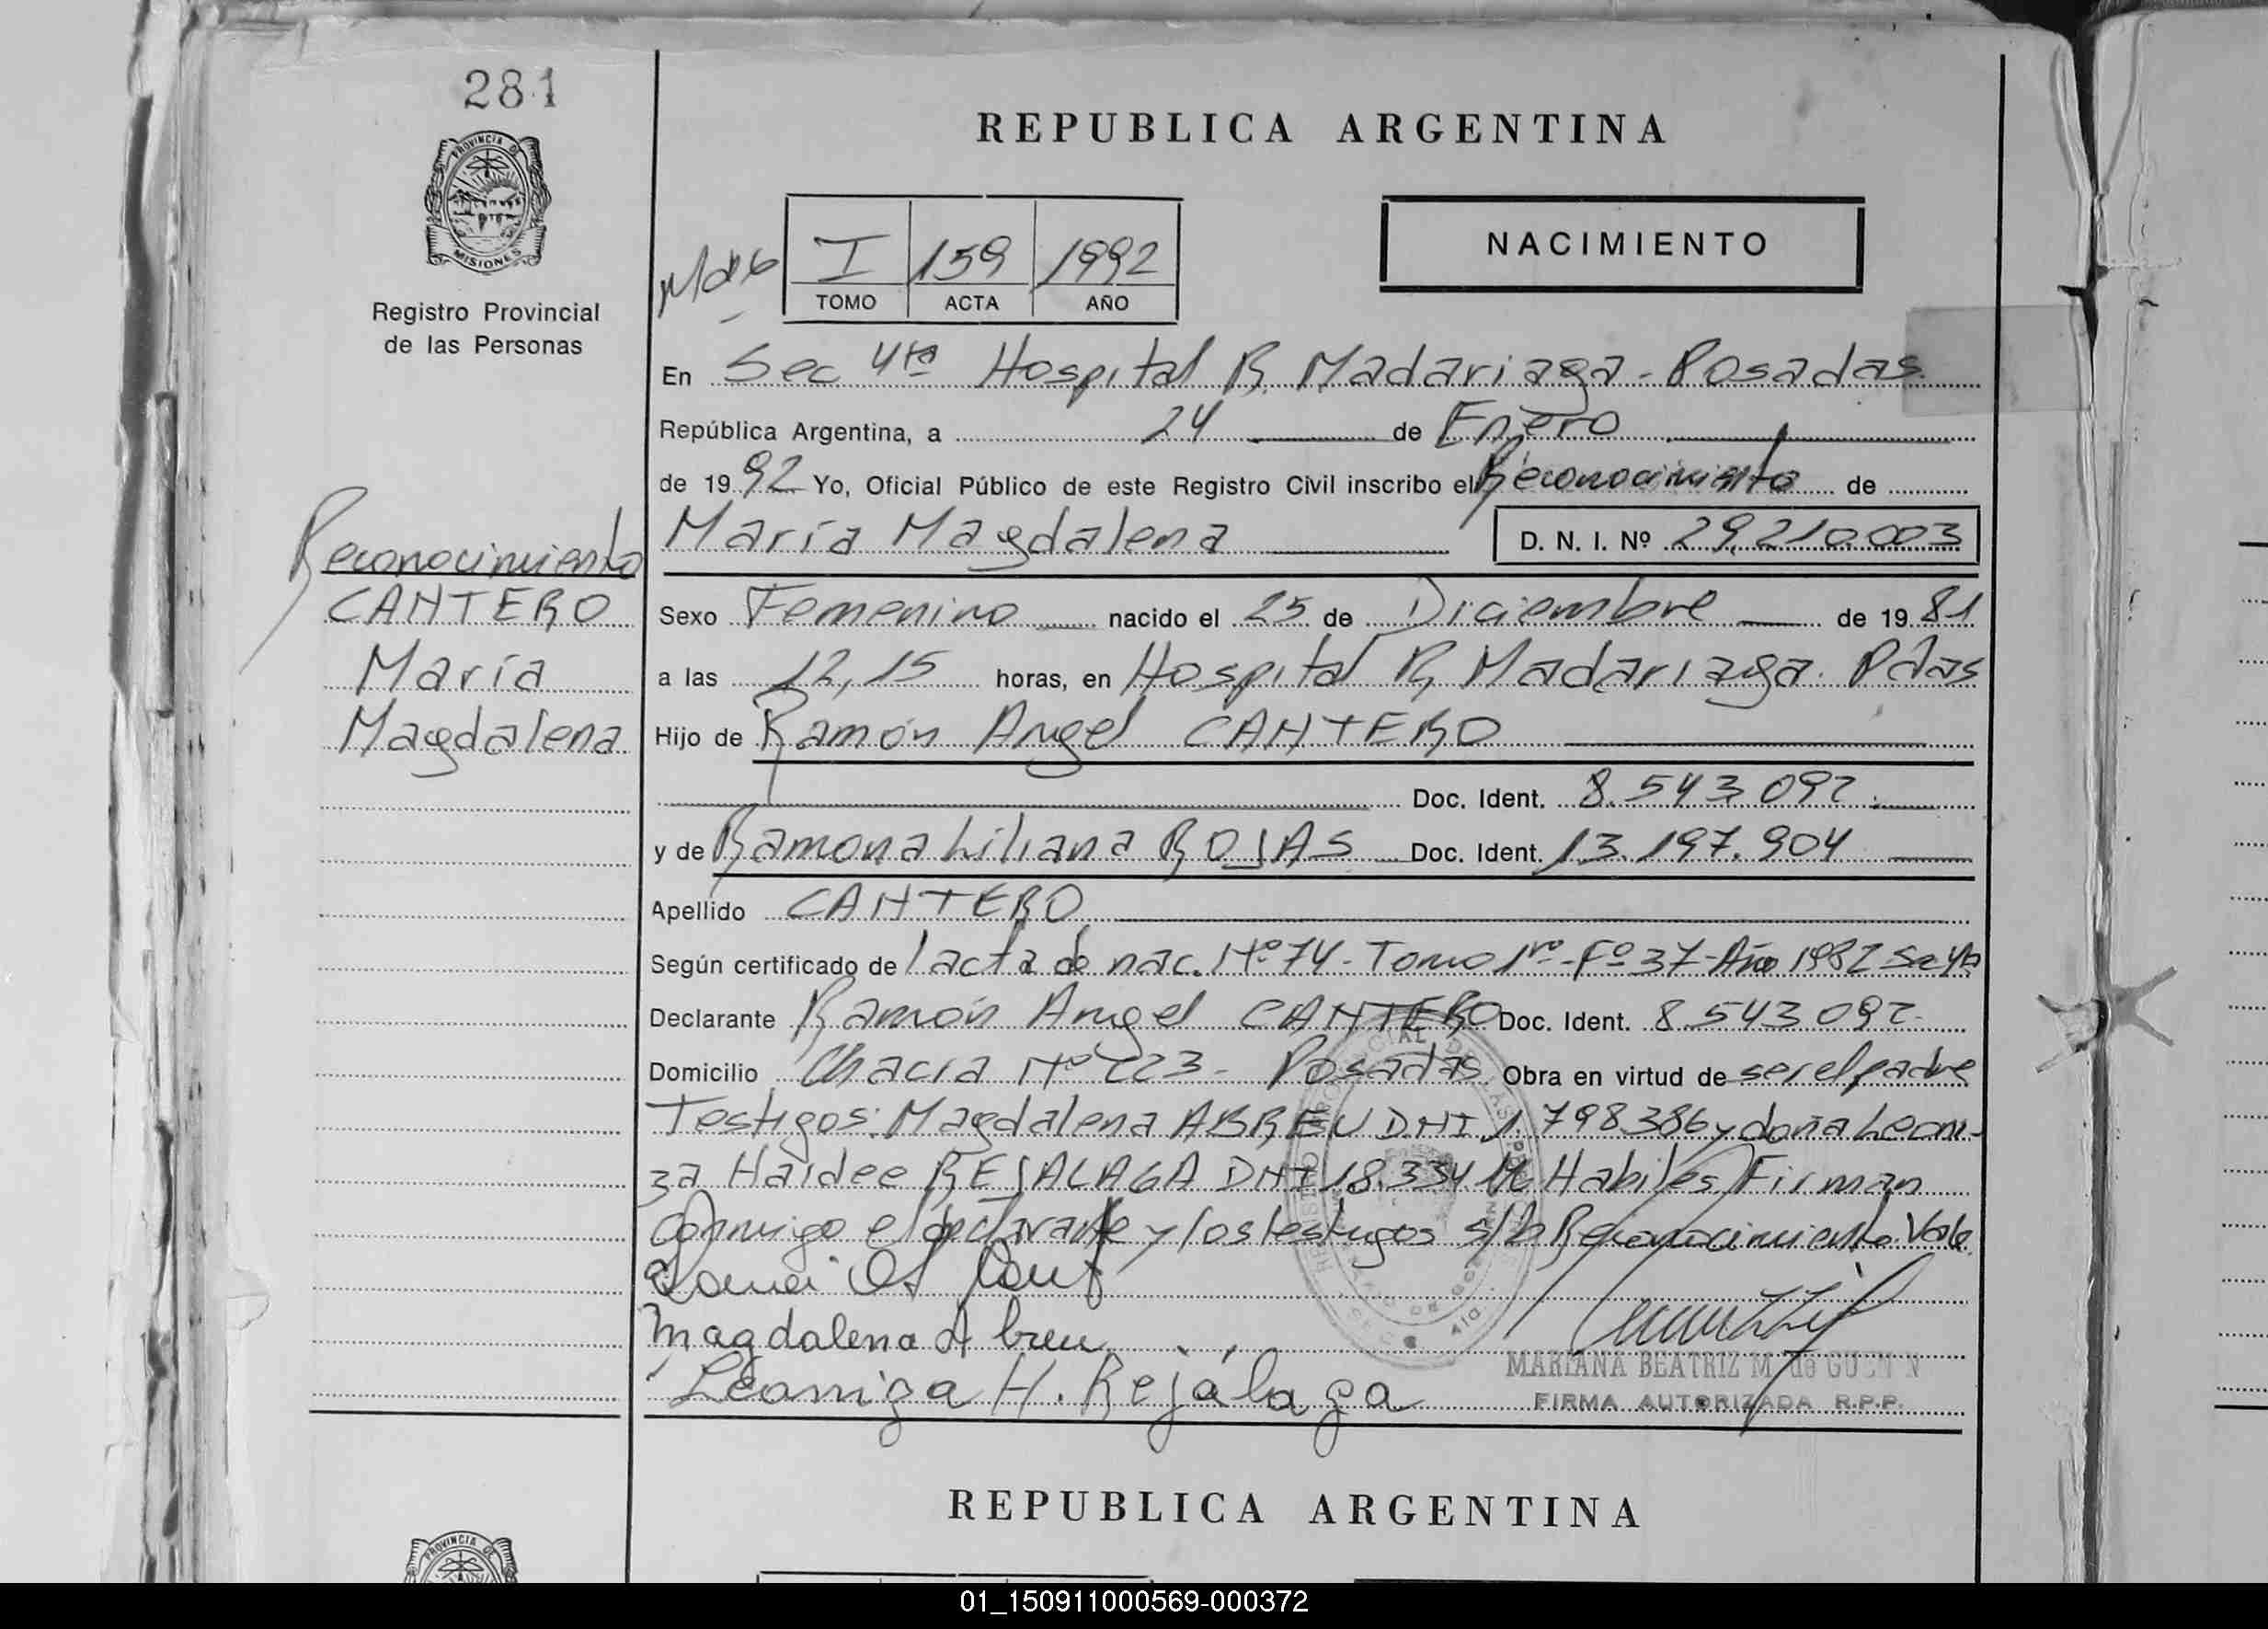 281
PROVINCIA DE
MISIONES
Registro Provincial
de las Personas
Reconocimiento
CANTERO
María
Magdalena
REPUBLICA ARGENTINA
I 159 1992
TOMO ACTA AÑO
NACIMIENTO
En Sec 4ta Hospital R. Madariaga - Posadas
República Argentina, a 24 de Enero
de 1992 Yo, Oficial Público de este Registro Civil inscribo el Reconocimiento de
María Magdalena D. N. I. Nº 29.210.003
Sexo Femenino nacido el 25 de Diciembre de 1981
a las 12,15 horas, en Hospital R, Madariaga. Pdas
Hijo de Ramón Angel CANTERO
Doc. Ident. 8.543.092
y de Ramona Liliana ROJAS Doc. Ident. 13.197.904
Apellido CANTERO
Según certificado de acta de nac. Nº 74 - Tomo 1ro - Fº 37 - Año 1982
Declarante Ramón Angel CANTERO Doc. Ident. 8.543.092
Domicilio Chacra Nº 223 - Posadas. Obra en virtud de ser el padre
Testigos: Magdalena ABREU DNI 1.798.386 y doña Leoni-
za Haidee REJALAGA DNI 18.334 Habiles Firman
Conmigo el declarante y los testigos s/b Reconocimiento Vale
Magdalena Abreu
Leoniza H. Rejálaga
MARIANA BEATRIZ M. de
FIRMA AUTORIZADA R.P.P.
REPUBLICA ARGENTINA
PROVINCIA DE
01_150911000569-000372